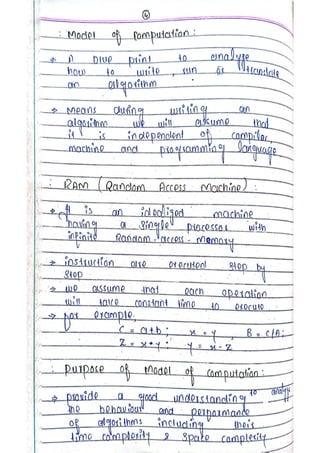 4
: Model of Computation :
→ A blue print to analyze
how to write, run or translate
an algorithm
→ Means during writing an
algorithm we will assume that
it is independent of compiler,
machine and programming language
RAM (Random Access Machine) :
→ It is an idealized machine
having a single processor with
infinite Random-access-memory
→ instruction are executed step by
step
→ we assume that each operation
will take constant time to execute
→ for example,
C = a+b ; x = y , B = c/A ;
Z = x+y ; y = x-z
: Purpose of Model of Computation :
→ provide a good understanding to analyze
the behaviour and performance
of algorithms including their
time complexity & space complexity